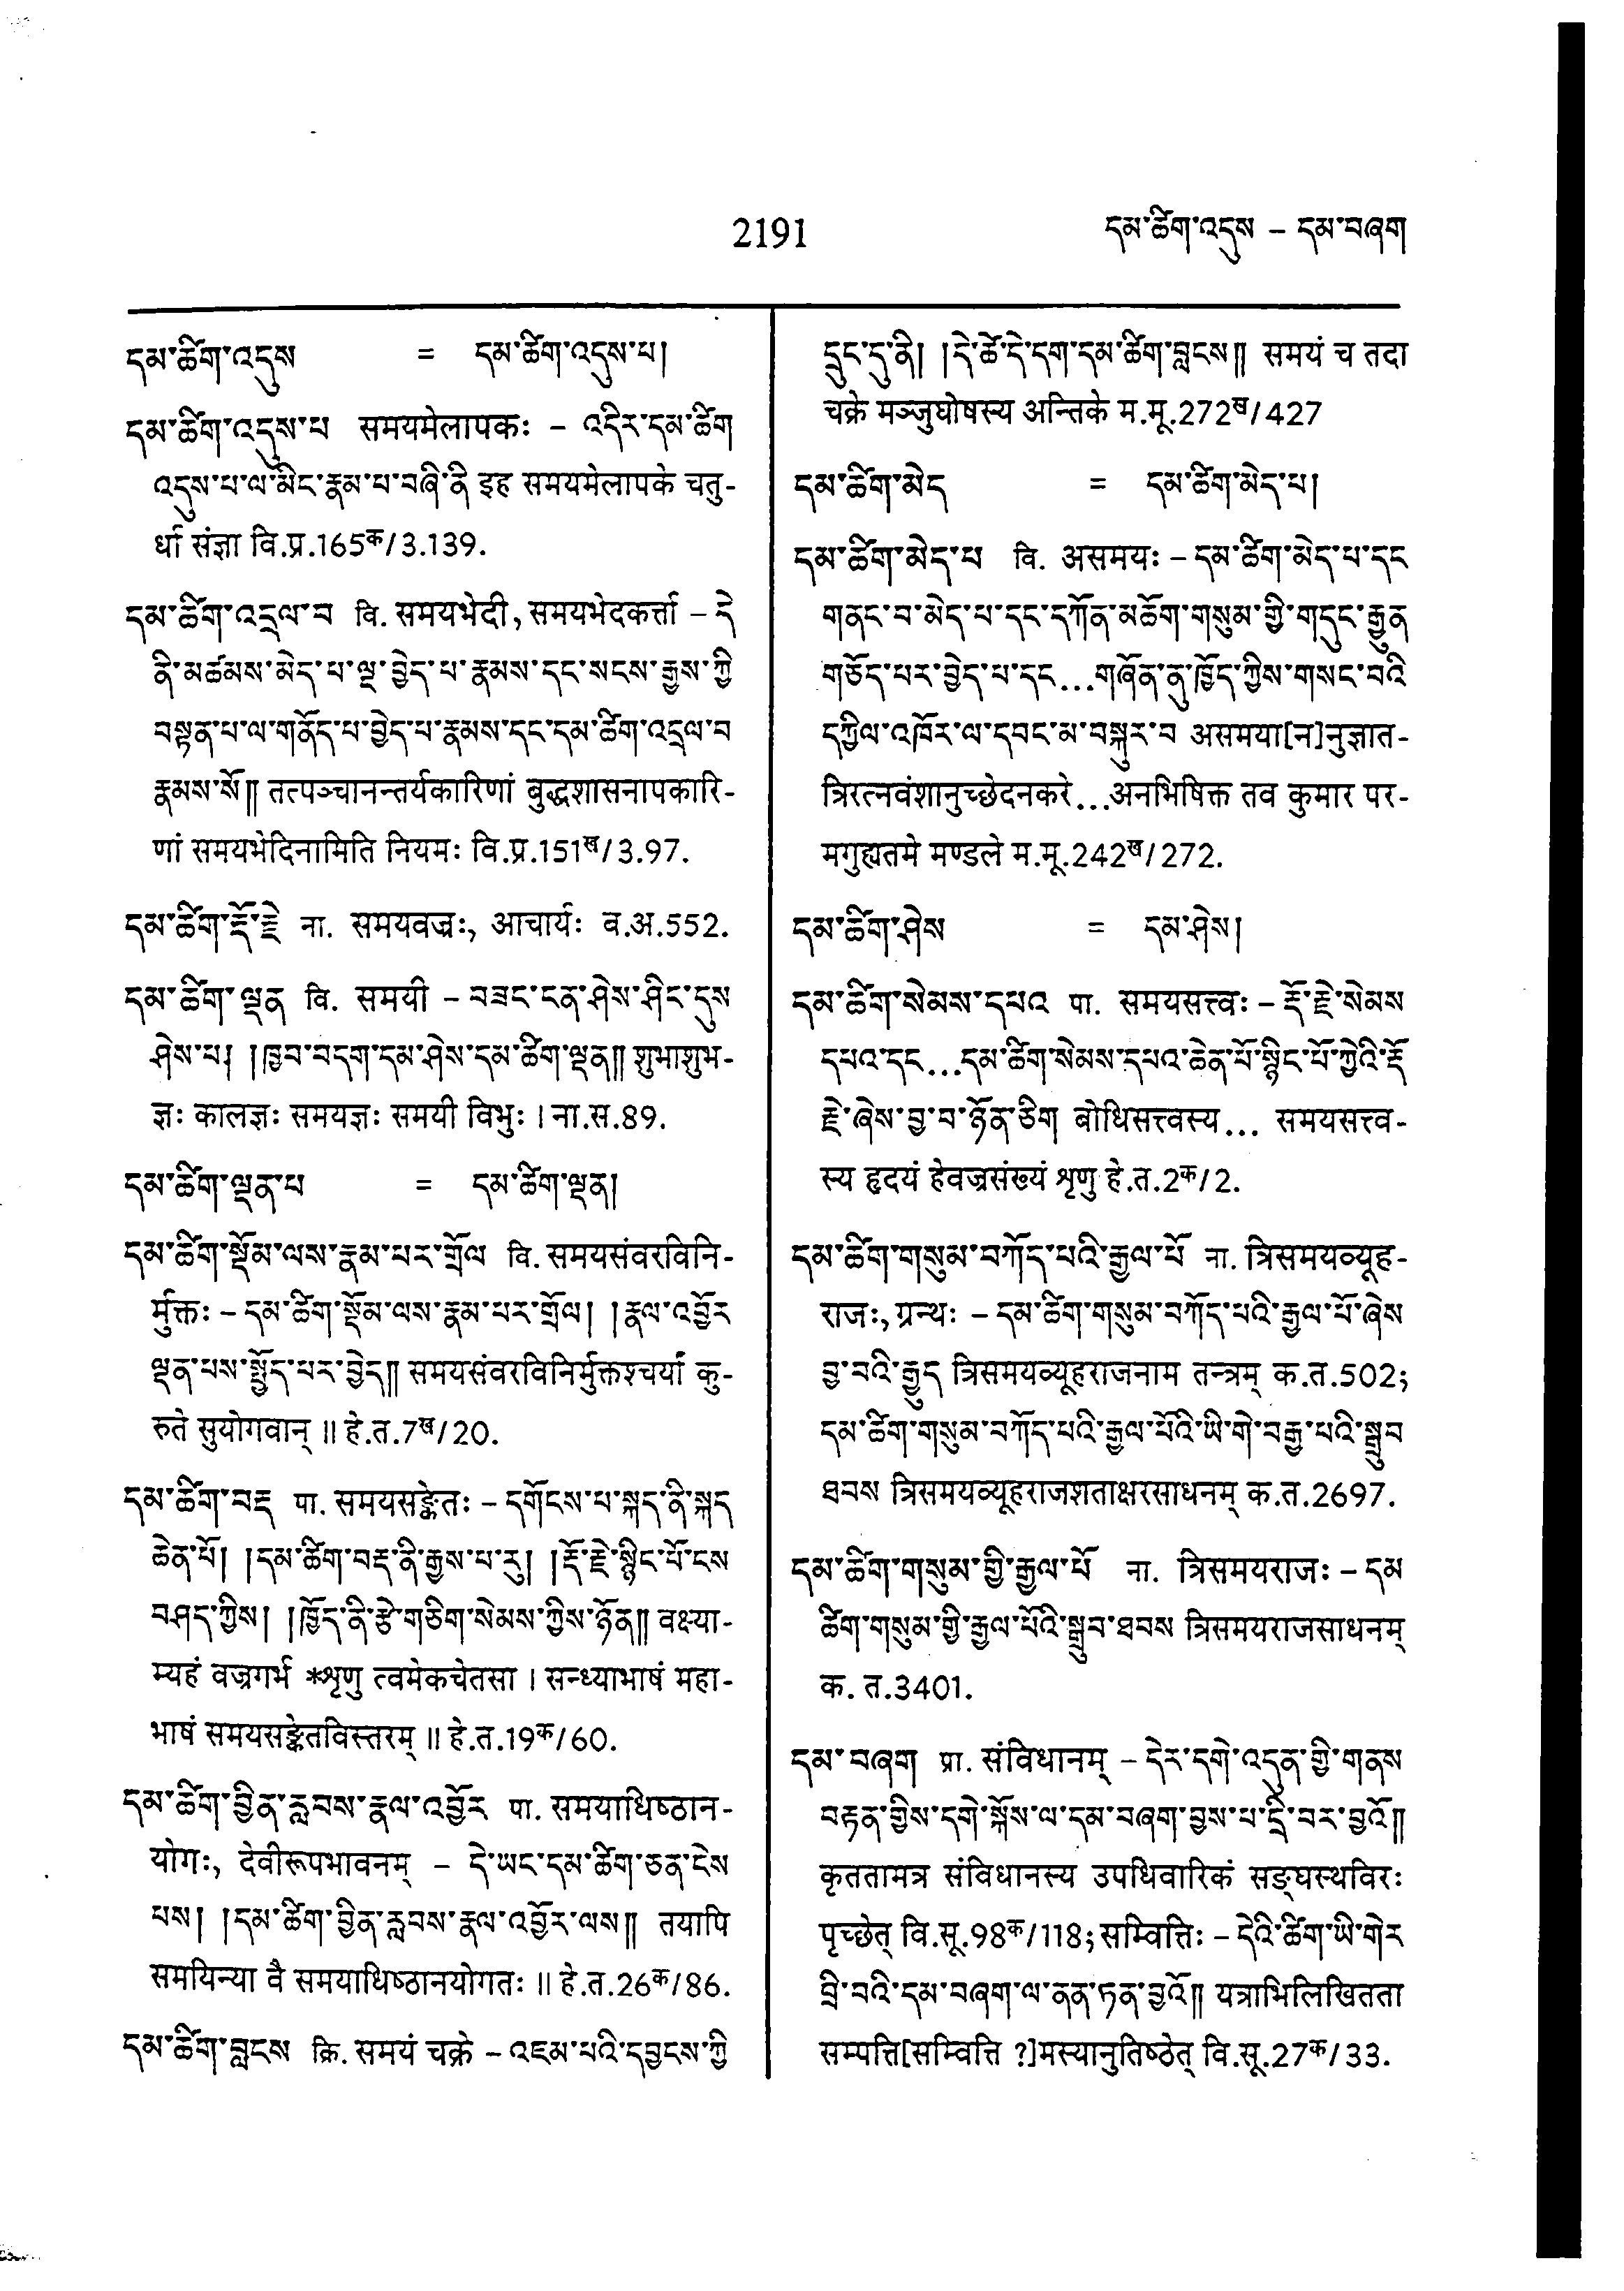 2191
དམ་ཚིག་འདུས – དམ་བཞག
དམ་ཚིག་འདུས = དམ་ཚིག་འདུས་པ།
དམ་ཚིག་འདུས་པ समयमेलापकः – འདིར་དམ་ཚིག
འདུས་པ་ལ་མིང་རྣམ་པ་བཞི་ནི इह समयमेलापके चतु-
र्धा संज्ञा वि.प्र.165क/3.139.
དམ་ཚིག་འདྲལ་བ वि. समयभेदी, समयभेदकर्त्ता – དེ
ནི་མཚམས་མེད་པ་ལྔ་བྱེད་པ་རྣམས་དང་སངས་རྒྱས་ཀྱི
བསྟན་པ་ལ་གནོད་པ་བྱེད་པ་རྣམས་དང་དམ་ཚིག་འདྲལ་བ
རྣམས་སོ༎ तत्पञ्चानन्तर्यकारिणां बुद्धशासनापकारि-
णां समयभेदिनामिति नियमः वि.प्र.151ख/3.97.
དམ་ཚིག་རྡོ་རྗེ ना. समयवज्रः, आचार्यः व.अ.552.
དམ་ཚིག་ལྡན वि. समयी – བཟང་ངན་ཤེས་ཤིང་དུས
ཤེས་པ། །ཁྱབ་བདག་དམ་ཤེས་དམ་ཚིག་ལྡན༎ शुभाशुभ-
ज्ञः कालज्ञः समयज्ञः समयी विभुः । ना.स.89.
དམ་ཚིག་ལྡན་པ = དམ་ཚིག་ལྡན།
དམ་ཚིག་སྡོམ་ལས་རྣམ་པར་གྲོལ वि. समयसंवरविनि-
र्मुक्तः – དམ་ཚིག་སྡོམ་ལས་རྣམ་པར་གྲོལ། །རྣལ་འབྱོར
ལྡན་པས་སྤྱོད་པར་བྱེད༎ समयसंवरविनिर्मुक्तश्चर्यां कु-
रुते सुयोगवान् ॥ हे.त.7ख/20.
དམ་ཚིག་བརྡ पा. समयसङ्केतः – དགོངས་པ་སྐད་ནི་སྐད
ཆེན་པོ། །དམ་ཚིག་བརྡ་ནི་རྒྱས་པ་རུ། །རྡོ་རྗེ་སྙིང་པོ་ངས
བཤད་ཀྱིས། །ཁྱོད་ནི་རྩེ་གཅིག་སེམས་ཀྱིས་ཉོན༎ वक्ष्या-
म्यहं वज्रगर्भ *शृणु त्वमेकचेतसा । सन्ध्याभाषं महा-
भाषं समयसङ्केतविस्तरम् ॥ हे.त.19क/60.
དམ་ཚིག་བྱིན་རླབས་རྣལ་འབྱོར पा. समयाधिष्ठान-
योगः, देवीरूपभावनम् – དེ་ཡང་དམ་ཚིག་ཅན་ངེས
པས། །དམ་ཚིག་བྱིན་རླབས་རྣལ་འབྱོར་ལས༎ तयापि
समयिन्या वै समयाधिष्ठानयोगतः ॥ हे.त.26क/86.
དམ་ཚིག་བླངས क्रि. समयं चक्रे – འཇམ་པའི་དབྱངས་ཀྱི
དྲུང་དུ་ནི། །དེ་ཚེ་དེ་དག་དམ་ཚིག་བླངས༎ समयं च तदा
चक्रे मञ्जुघोषस्य अन्तिके म.मू.272ख/427
དམ་ཚིག་མེད = དམ་ཚིག་མེད་པ།
དམ་ཚིག་མེད་པ वि. असमयः – དམ་ཚིག་མེད་པ་དང
གནང་བ་མེད་པ་དང་དཀོན་མཆོག་གསུམ་གྱི་གདུང་རྒྱུན
གཅོད་པར་བྱེད་པ་དང...གཞོན་ནུ་ཁྱོད་ཀྱིས་གསང་བའི
དཀྱིལ་འཁོར་ལ་དབང་མ་བསྐུར་བ असमया[न]नुज्ञात-
त्रिरत्नवंशानुच्छेदनकरे...अनभिषिक्त तव कुमार पर-
मगुह्यतमे मण्डले म.मू.242ख/272.
དམ་ཚིག་ཤེས = དམ་ཤེས།
དམ་ཚིག་སེམས་དཔའ पा. समयसत्त्वः – རྡོ་རྗེ་སེམས
དཔའ་དང...དམ་ཚིག་སེམས་དཔའ་ཆེན་པོ་སྙིང་པོ་ཀྱེའི་རྡོ
རྗེ་ཞེས་བྱ་བ་ཉོན་ཅིག बोधिसत्त्वस्य... समयसत्त्व-
स्य हृदयं हेवज्रसंख्यं शृणु हे.त.2क/2.
དམ་ཚིག་གསུམ་བཀོད་པའི་རྒྱལ་པོ ना. त्रिसमयव्यूह-
राजः, ग्रन्थः – དམ་ཚིག་གསུམ་བཀོད་པའི་རྒྱལ་པོ་ཞེས
བྱ་བའི་རྒྱུད त्रिसमयव्यूहराजनाम तन्त्रम् क.त.502;
དམ་ཚིག་གསུམ་བཀོད་པའི་རྒྱལ་པོའི་ཡི་གེ་བརྒྱ་པའི་སྒྲུབ
ཐབས त्रिसमयव्यूहराजशताक्षरसाधनम् क.त.2697.
དམ་ཚིག་གསུམ་གྱི་རྒྱལ་པོ ना. त्रिसमयराजः – དམ
ཚིག་གསུམ་གྱི་རྒྱལ་པོའི་སྒྲུབ་ཐབས त्रिसमयराजसाधनम्
क. त.3401.
དམ་བཞག प्रा. संविधानम् – དེར་དགེ་འདུན་གྱི་གནས
བརྟན་གྱིས་དགེ་སྐོས་ལ་དམ་བཞག་བྱས་པ་དྲི་བར་བྱའོ༎
कृततामत्र संविधानस्य उपधिवारिकं सङ्घस्थविरः
पृच्छेत् वि.सू.98क/118; सम्वित्तिः – དེའི་ཚིག་ཡི་གེར
བྲི་བའི་དམ་བཞག་ལ་ནན་ཏན་བྱའོ༎ यत्राभिलिखितता
सम्पत्ति[सम्वित्ति ?]मस्यानुतिष्ठेत् वि.सू.27क/33.